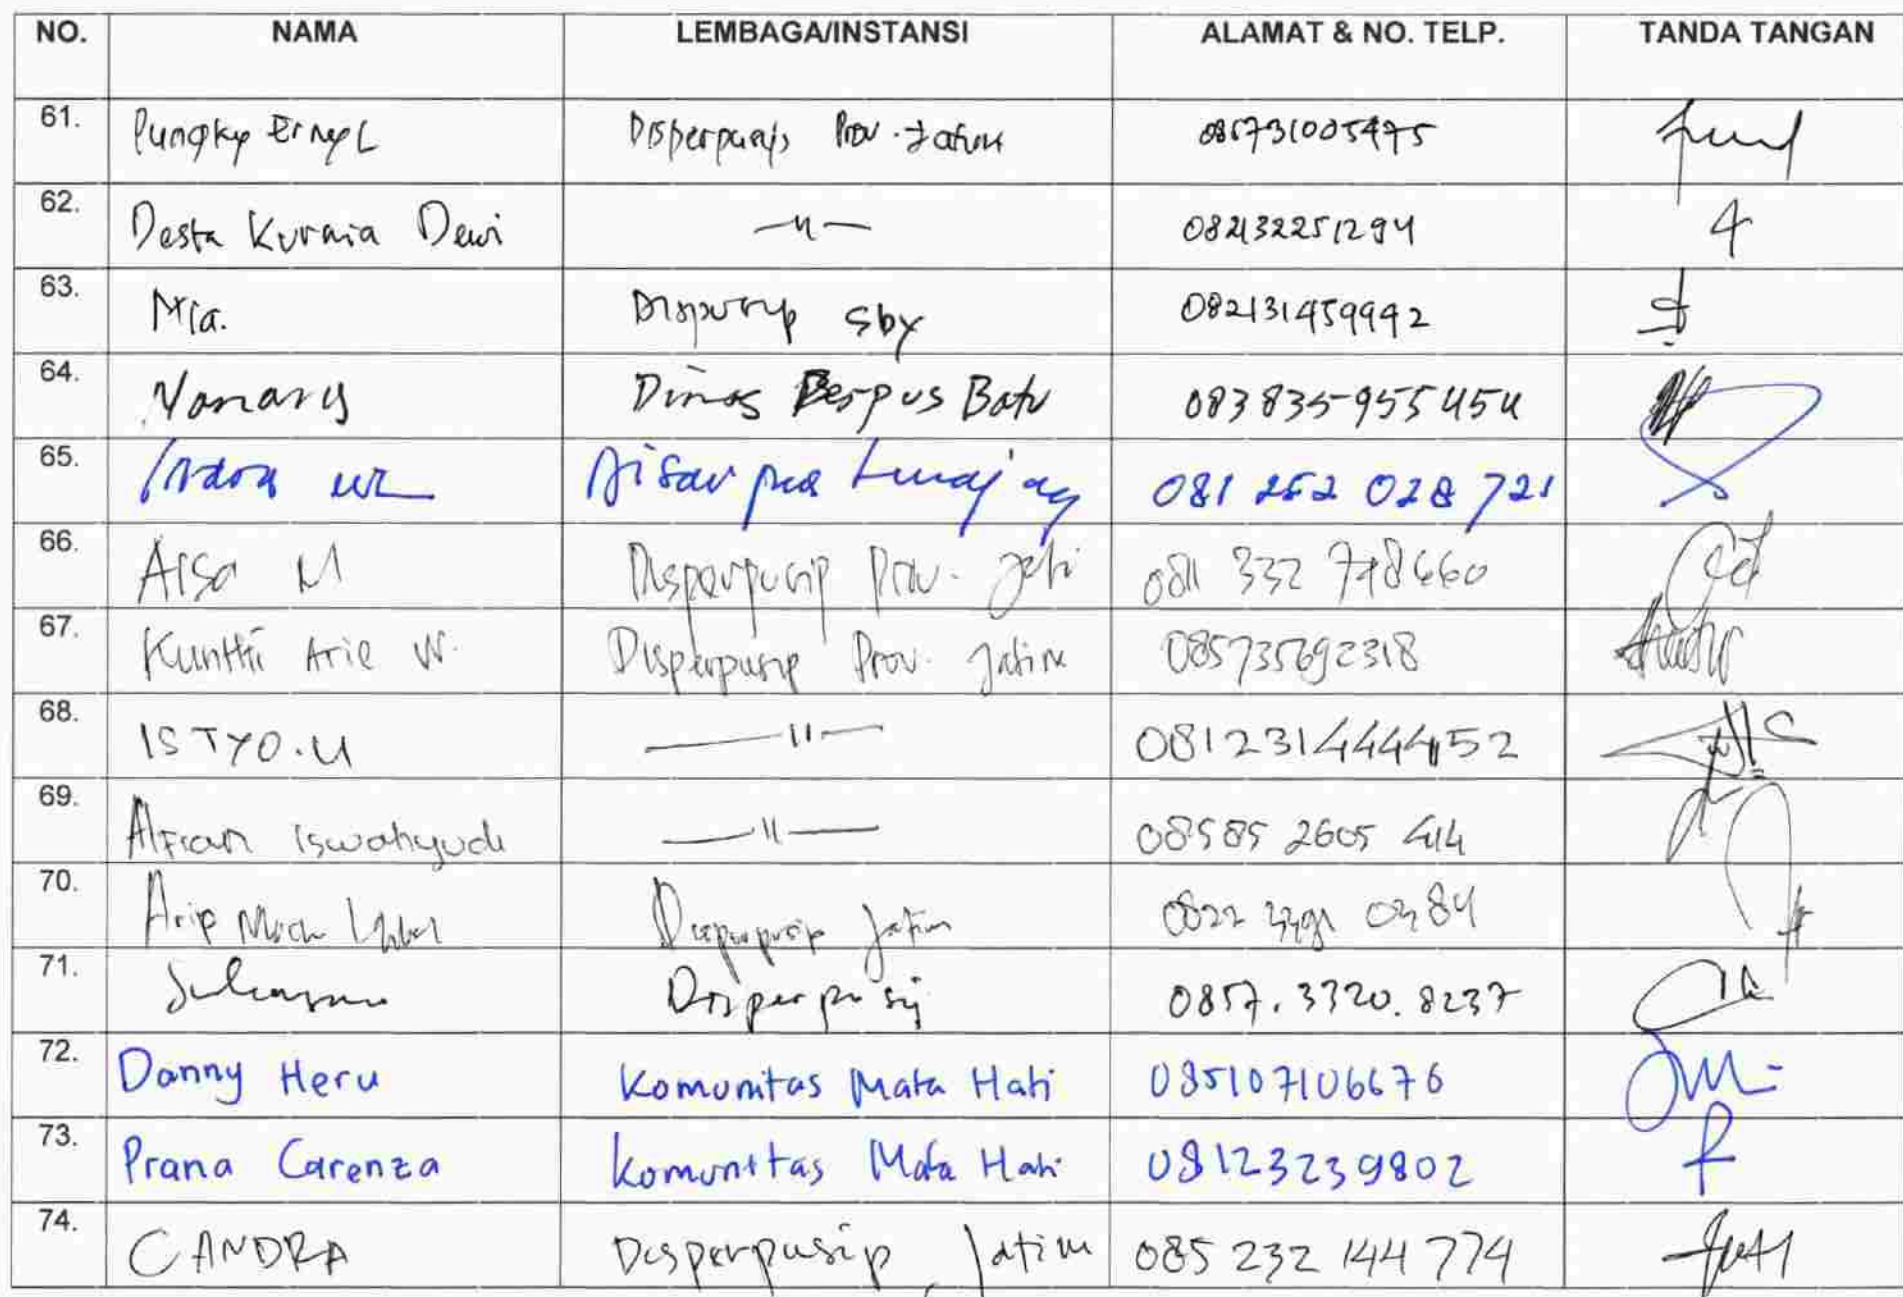 NO. NAMA LEMBAGA/INSTANSI ALAMAT & NO. TELP. TANDA TANGAN
61. Pungky Erny L Disperpusip Prov. Jatim 085731005475
62. Desta Kurnia Dewi —〃— 082132251294
63. Mia. Dispusip Sby 082131459992
64. Dinas Perpus Batu 083835955454
65. 081 252 028 721
66. Aisa M Disperpusip Prov. 0811 332 748660
67. Kunthi Arie W. Disperpusip Prov. Jatim 085735692318
68. ISTYO.U —〃— 081231444452
69. Alfian Iswahyudi —〃— 08585 2605 414
70. Arip Moch Disperpusip Jatim 0822
71. Disperpusip 0857.3320.8237
72. Danny Heru Komunitas Mata Hati 085107106676
73. Prana Carenza Komunitas Mata Hati 08123239802
74. CANDRA Disperpusip Jatim 085 232 144 774